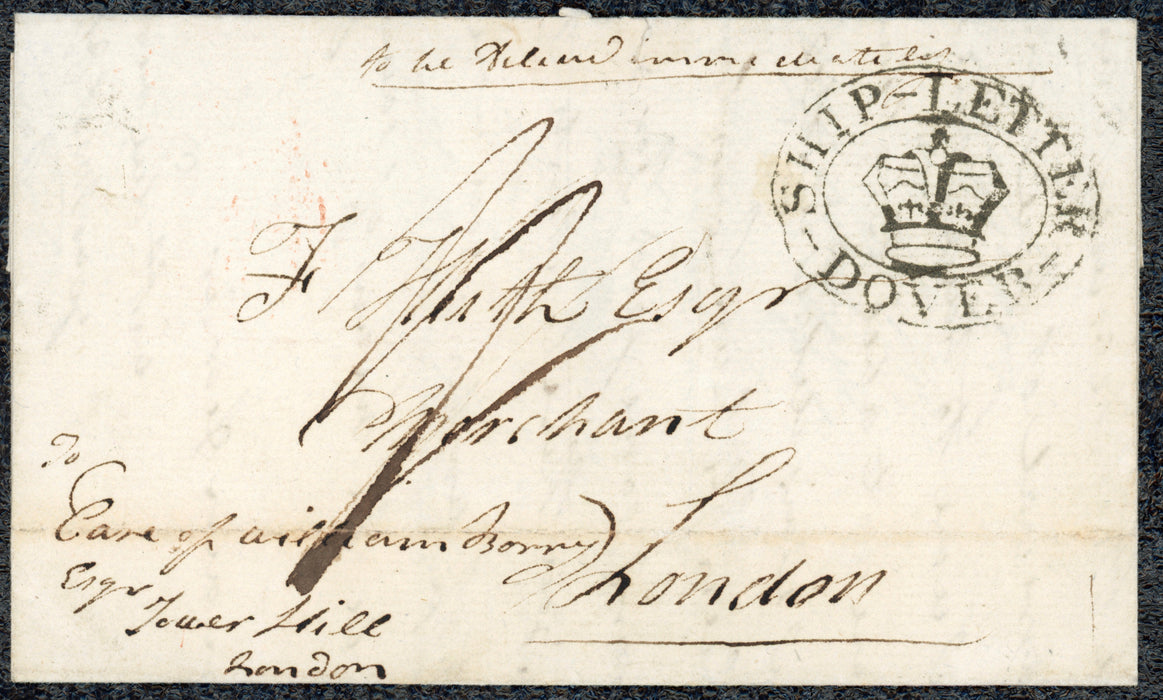 to be Delierd immediatelis
SHIP-LETTER
DOVER
F Huth Esqr
Merchant
London
To
Care of William Borry
Esqr
Tower Hill
London